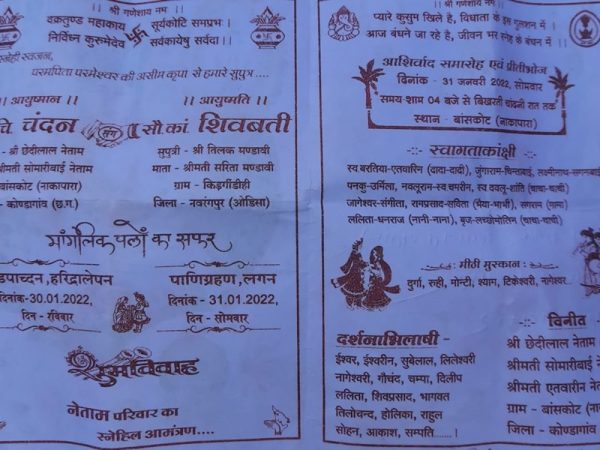 ।। श्री गणेशाय नमः ।।
वक्रतुण्ड महाकाय सूर्यकोटि समप्रभः।
निर्विघ्न कुरुमेदेव सर्वकार्येषु सर्वदा।।
स्नेही स्वजन,
परमपिता परमेश्वर की असीम कृपा से हमारे सुपुत्र....
।। आयुष्मान ।। ।। आयुष्मति ।।
चि चंदन संग सौ.कां. शिवबती
- श्री छेदीलाल नेताम सुपुत्री - श्री तिलक मण्डावी
श्रीमती सोमारीबाई नेताम माता - श्रीमती सरिता मण्डावी
बांसकोट (नाकापारा) ग्राम - किड़गीडीही
- कोण्डागांव (छ.ग.) जिला - नवरंगपुर (ओडिसा)
मांगलिक पलों का सफर
डपाच्दन, हरिद्रालेपन पाणिग्रहण, लगन
दिनांक-30.01.2022, दिनांक- 31.01.2022,
दिन - रविवार दिन - सोमवार
शुभविवाह
नेताम परिवार का
स्नेहिल आमंत्रण....
।। श्री गणेशाय नमः ।।
प्यारे कुसुम खिले है, विधाता के इस गुलशन में ।
आज बंधने जा रहे है, जीवन भर स्नेह के बंधन में ।।
आशिर्वाद समारोह एवं प्रीतीभोज
दिनांक - 31 जनवरी 2022, सोमवार
समय-शाम 04 बजे से बिखरती चंदनी रात तक
स्थान - बांसकोट (नाकापारा)
-:: स्वागताकांक्षी ::-
स्व बरतिया-एतवारिन (दादा-दादी), जुंगाराम-
पनकु-उर्मिला, नवलूराम-स्व चमरीन, स्व दवलू-शांति (चाचा-चाची)
जागेश्वर-संगीता, रामप्रसाद-सविता (भैया-भाभी), सगराम (मामा)
ललिता-धनराज (नानी-नाना), बृज-लच्छोमोतिन (चाचा-चाची)
-: मीठी मुस्कान :-
दुर्गा, रुही, मोन्टी, श्याम, टिकेश्वरी, नामेश्वर
दर्शनाभिलाषी -
ईश्वर, ईश्वरीन, सुबेलाल, लिलेश्वरी
नागेश्वरी, गौचंद, चम्पा, दिलीप
ललिता, शिवप्रसाद, भागवत
तिलोचन्द, होलिका, राहुल
सोहन, आकाश, सम्पति......।
-::- विनीत -::-
श्री छेदीलाल नेताम
श्रीमती सोमारीबाई नेताम
श्रीमती एतवारीन नेताम
ग्राम - बांसकोट (नाका
जिला - कोण्डागांव